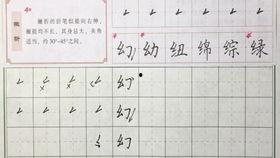 撇折
撇折的折笔似提向右伸，
撇折均不长，其身忌大，夹角
适当，约 30°-45°之间。
幻 幼 纽 绵 综 绿
幻
幻
幻